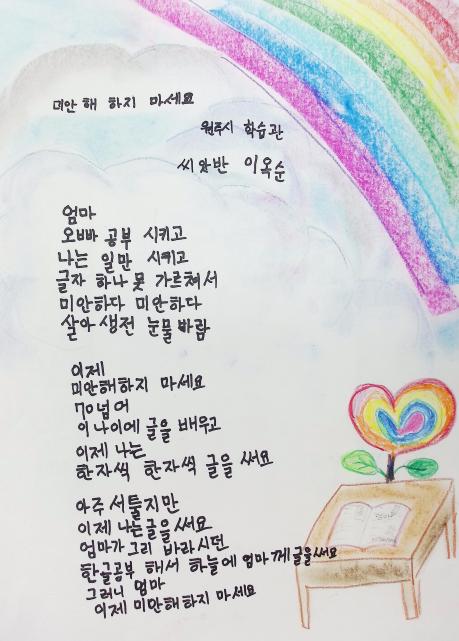 미안해 하지 마세요
원주시 학습관
씨앗반 이옥순
엄마
오빠 공부 시키고
나는 일만 시키고
글자 하나 못 가르쳐서
미안하다 미안하다
살아생전 눈물 바람
이제
미안해하지 마세요
70넘어
이나이에 글을 배우고
이제 나는
한자씩 한자씩 글을 써요
아주 서툴지만
이제 나는글을 써요
엄마가 그리 바라시던
한글공부 해서 하늘에 엄마께 글을써요
그러니 엄마
이제 미안해하지 마세요